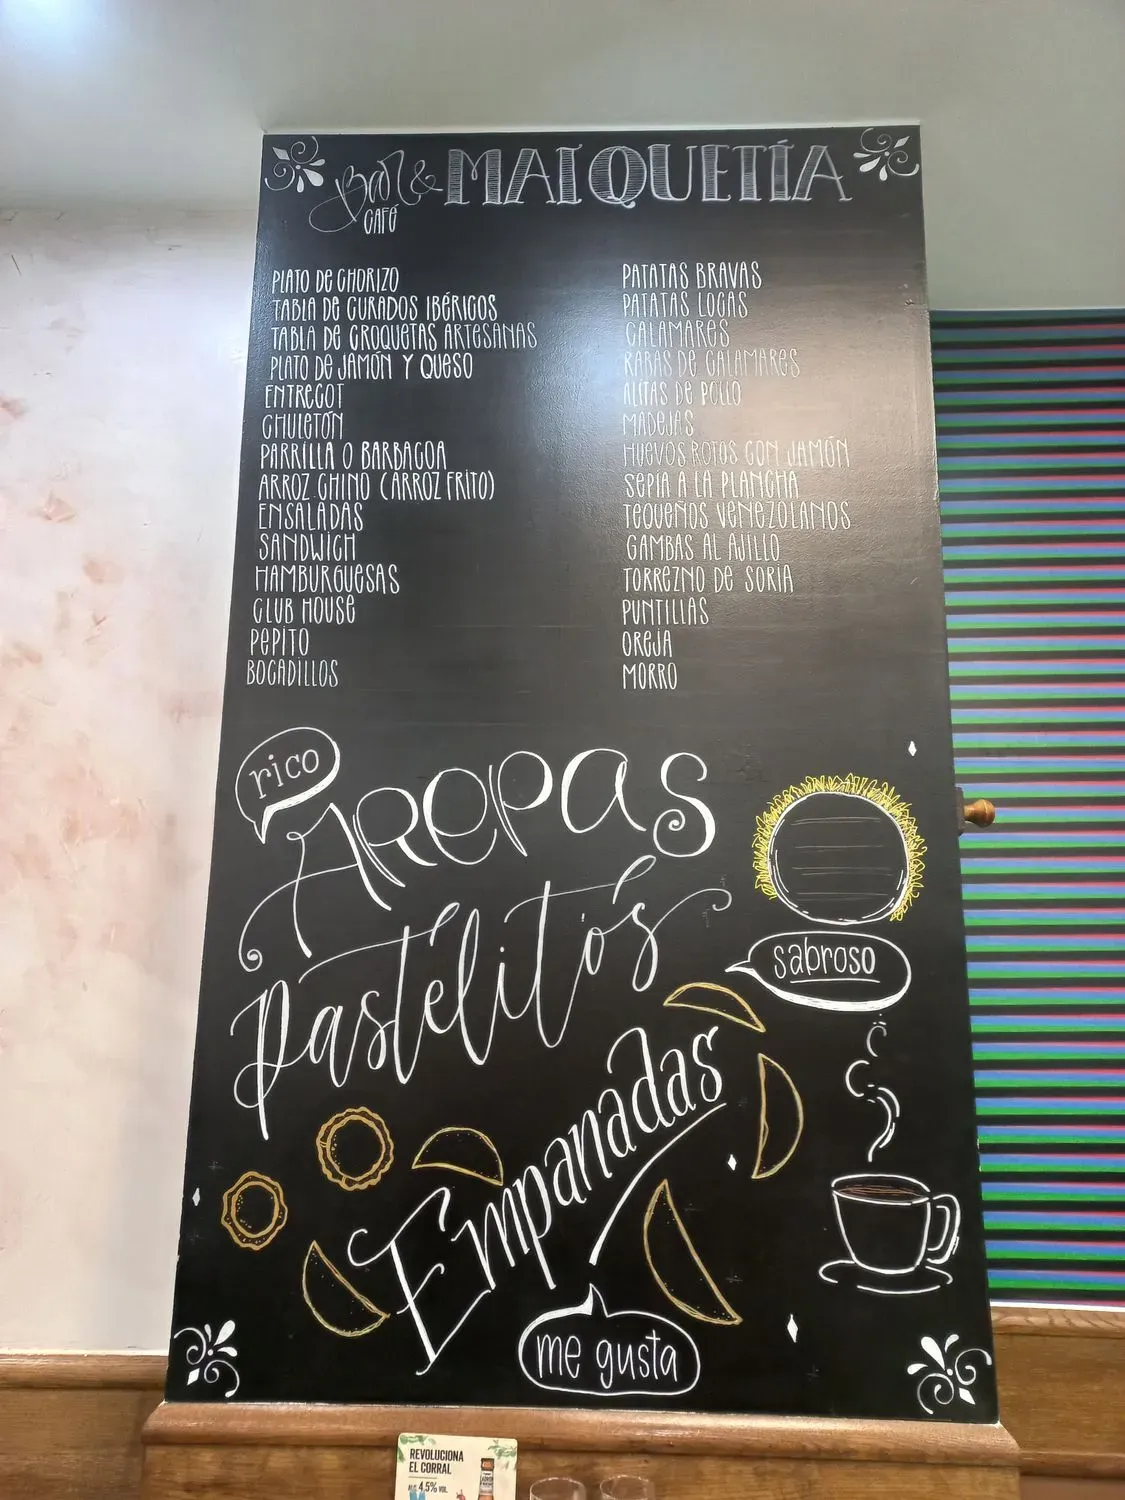 Bar &
CAFÉ
MAIQUETÍA
PLATO DE CHORIZO
TABLA DE CURADOS IBÉRICOS
TABLA DE CROQUETAS ARTESANAS
PLATO DE JAMÓN Y QUESO
ENTRECOT
CHULETÓN
PARRILLA O BARBACOA
ARROZ CHINO (ARROZ FRITO)
ENSALADAS
SANDWICH
HAMBURGUESAS
CLUB HOUSE
PEPITO
BOCADILLOS
PATATAS BRAVAS
PATATAS LOCAS
CALAMARES
RABAS DE CALAMARES
ALITAS DE POLLO
MADEJAS
HUEVOS ROTOS CON JAMÓN
SEPIA A LA PLANCHA
TEQUEÑOS VENEZOLANOS
GAMBAS AL AJILLO
TORREZNO DE SORIA
PUNTILLAS
OREJA
MORRO
rico
AREPAS
Pastelitos
sabroso
Empanadas
me gusta
REVOLUCIONA
EL CORRAL
ALC. 4,5% VOL.